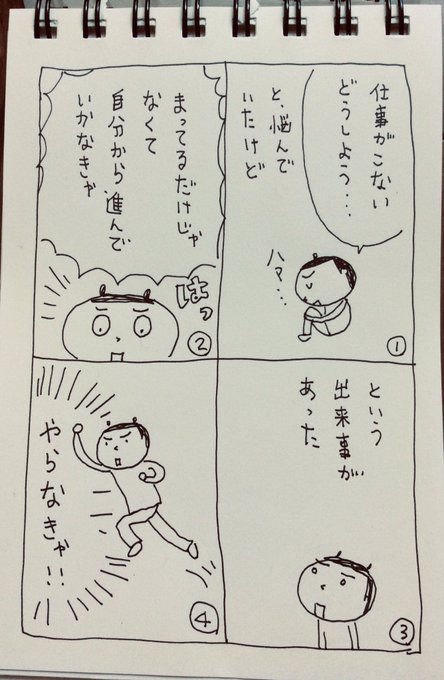 仕事がこない
どうしよう・・・
と、悩んで
いたけど
ハァ・・・
①
まってるだけじゃ
なくて
自分から進んで
いかなきゃ
はっ
②
という
出来事が
あった
③
やらなきゃ!!
④